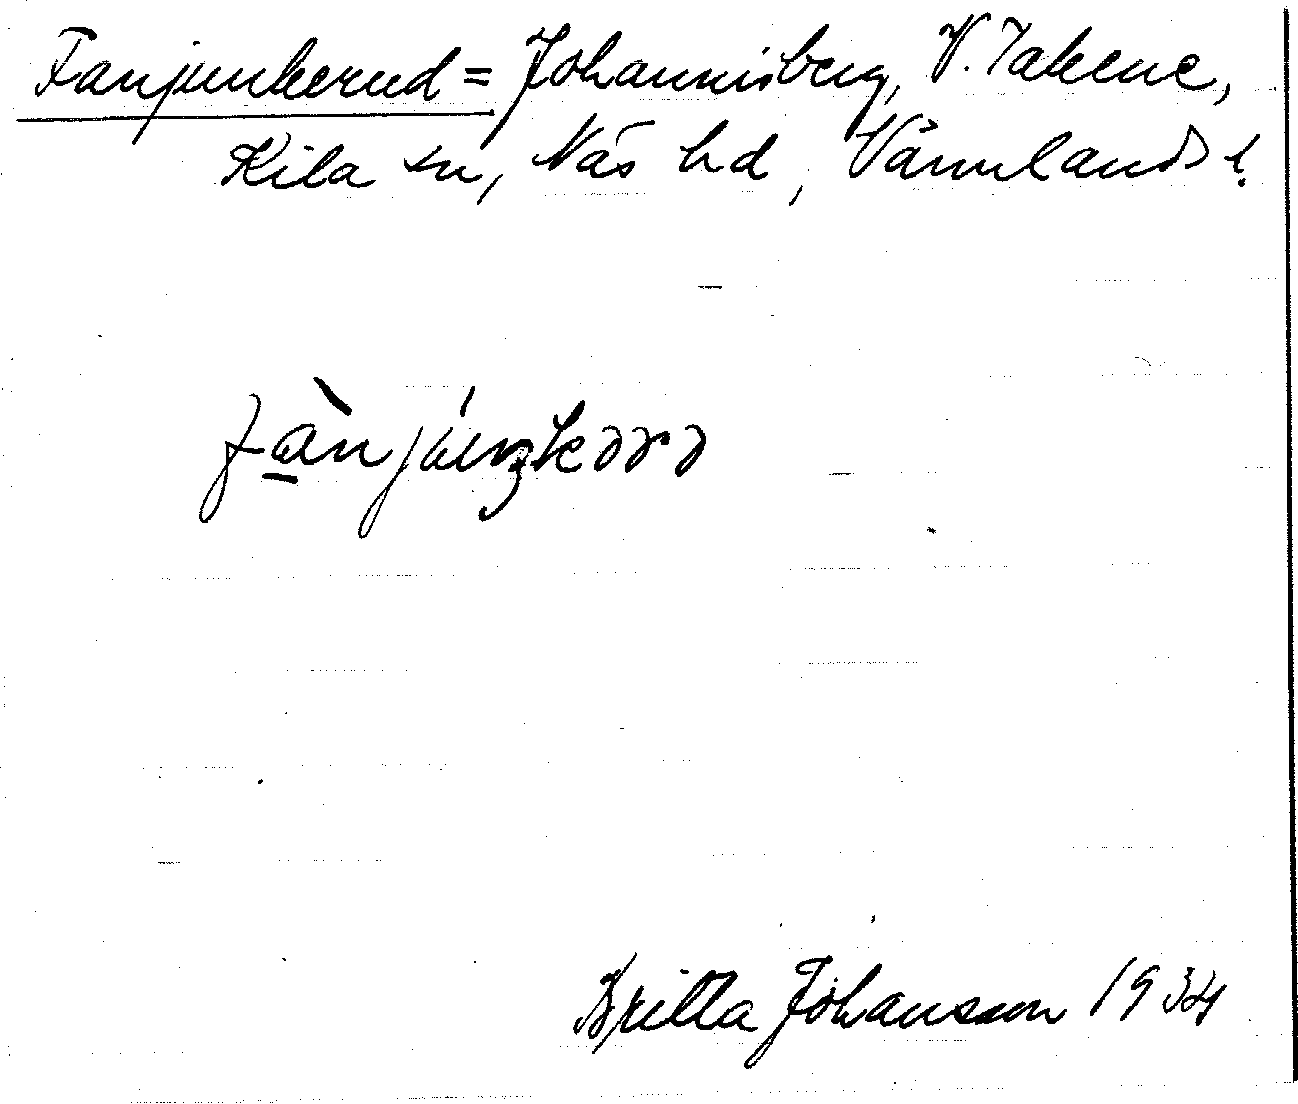 Fanjunkerud = Johannisberg, V. Takene,
Kila sn, Näs hd, Värmlands l.
fànjúŋkərə
Britta Johansson 1934